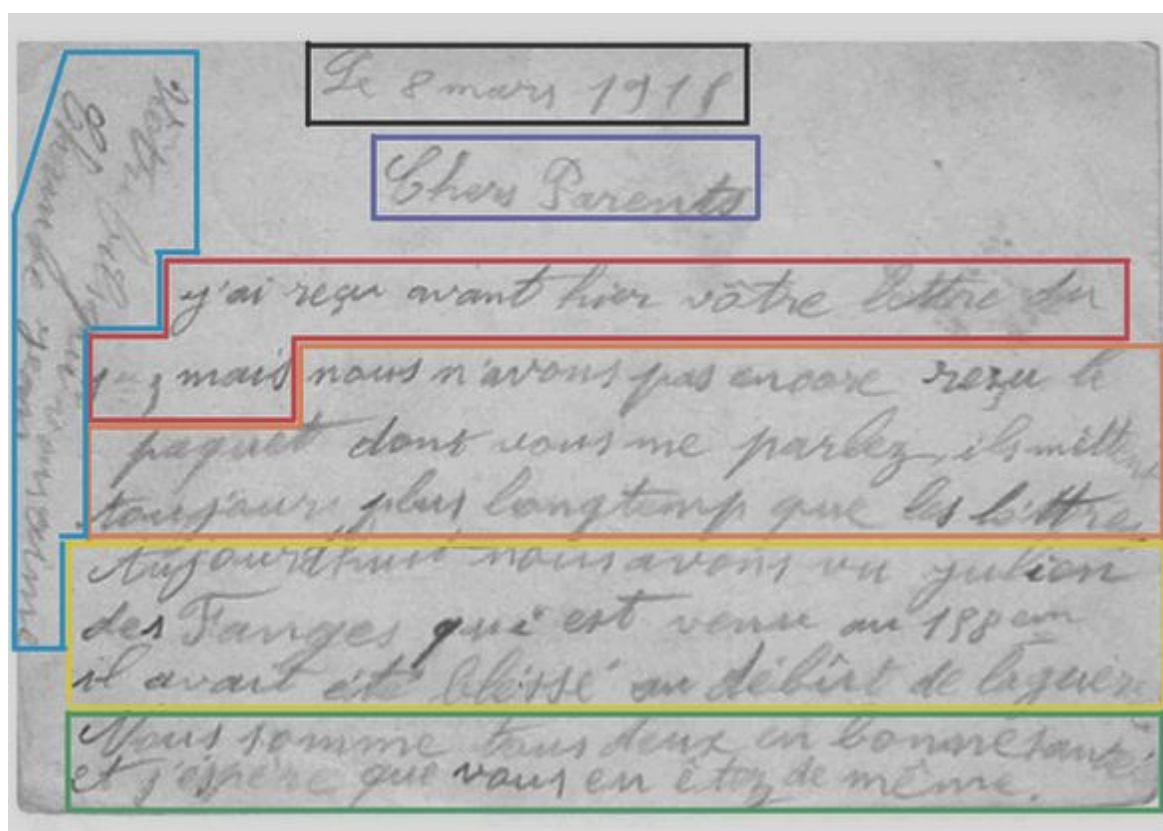 Le 8 mars 1918
Chers Parents
j'ai reçu avant hier vôtre lettre du
mais nous n'avons pas encore reçu le
paquet dont vous me parlez, ils mettent
toujours plus longtemp que les lettres
Aujourdhui nous avons vu julien
des Fanges qui est venu au 158 em
il avait été blessé au débût de la guère
Nous somme tous deux en bonne santé
et j'espère que vous en êtez de même.
Votre fils qui